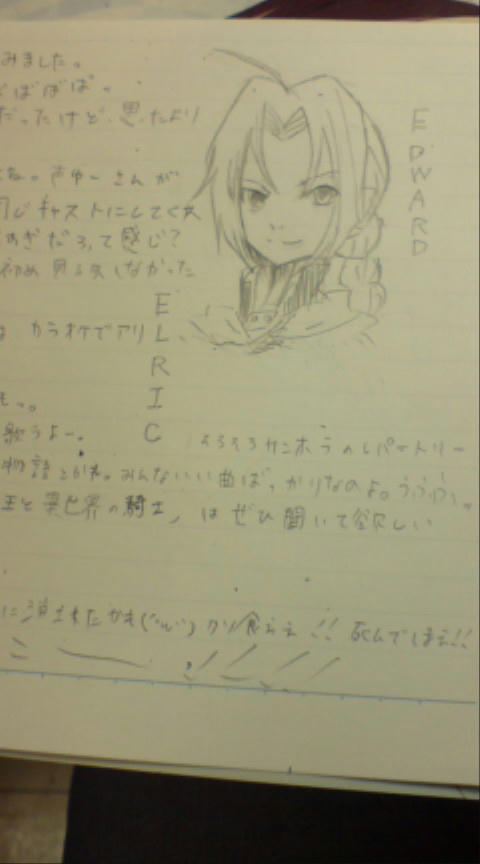 みました。
ばばば。
だったけど、思ったより
さんが
同じキャストにしてくれ
すぎだろって感じ？
初め見る気しなかった
EDWARD
ELRIC
カラオケでアリ
歌うよー。
そろそろサンホラのレパートリー
物語とかね。みんないい曲ばっかりなのよ。うふふ。
王と異世界の騎士」はぜひ聞いて欲しい
に消されたかも クソ食らえ!! 死んでしまえ!!